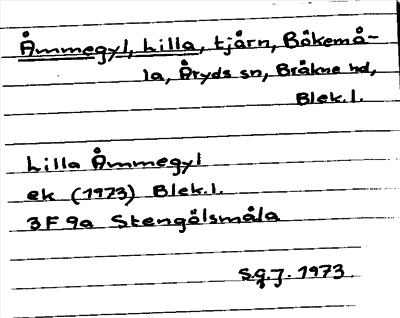 Åmmegyl, Lilla, tjärn, Bökemå-
la, Åryds sn, Bräkne hd,
Blek.l.
Lilla Åmmegyl
ek (1973) Blek.l.
3F 9a Stengölsmåla
S.g.J. 1973